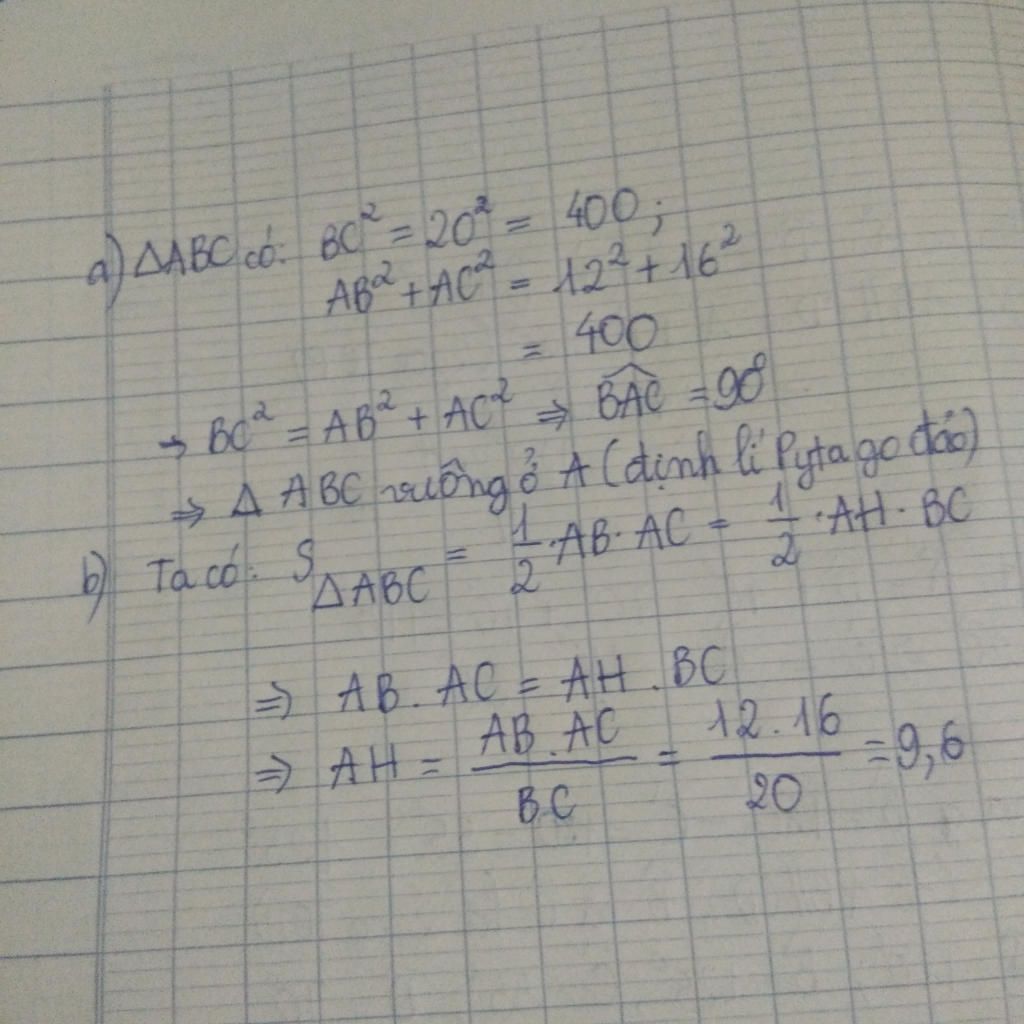 a) ΔABC có: BC² = 20² = 400;
AB² + AC² = 12² + 16²
= 400
→ BC² = AB² + AC² ⇒ \widehat{BAC} = 90°
⇒ Δ ABC vuông ở A (định lí Pytago đảo)
b) Ta có: S_{ΔABC} = \frac{1}{2}·AB·AC = \frac{1}{2}·AH·BC
⇒ AB.AC = AH.BC
⇒ AH = \frac{AB.AC}{BC} = \frac{12.16}{20} = 9,6